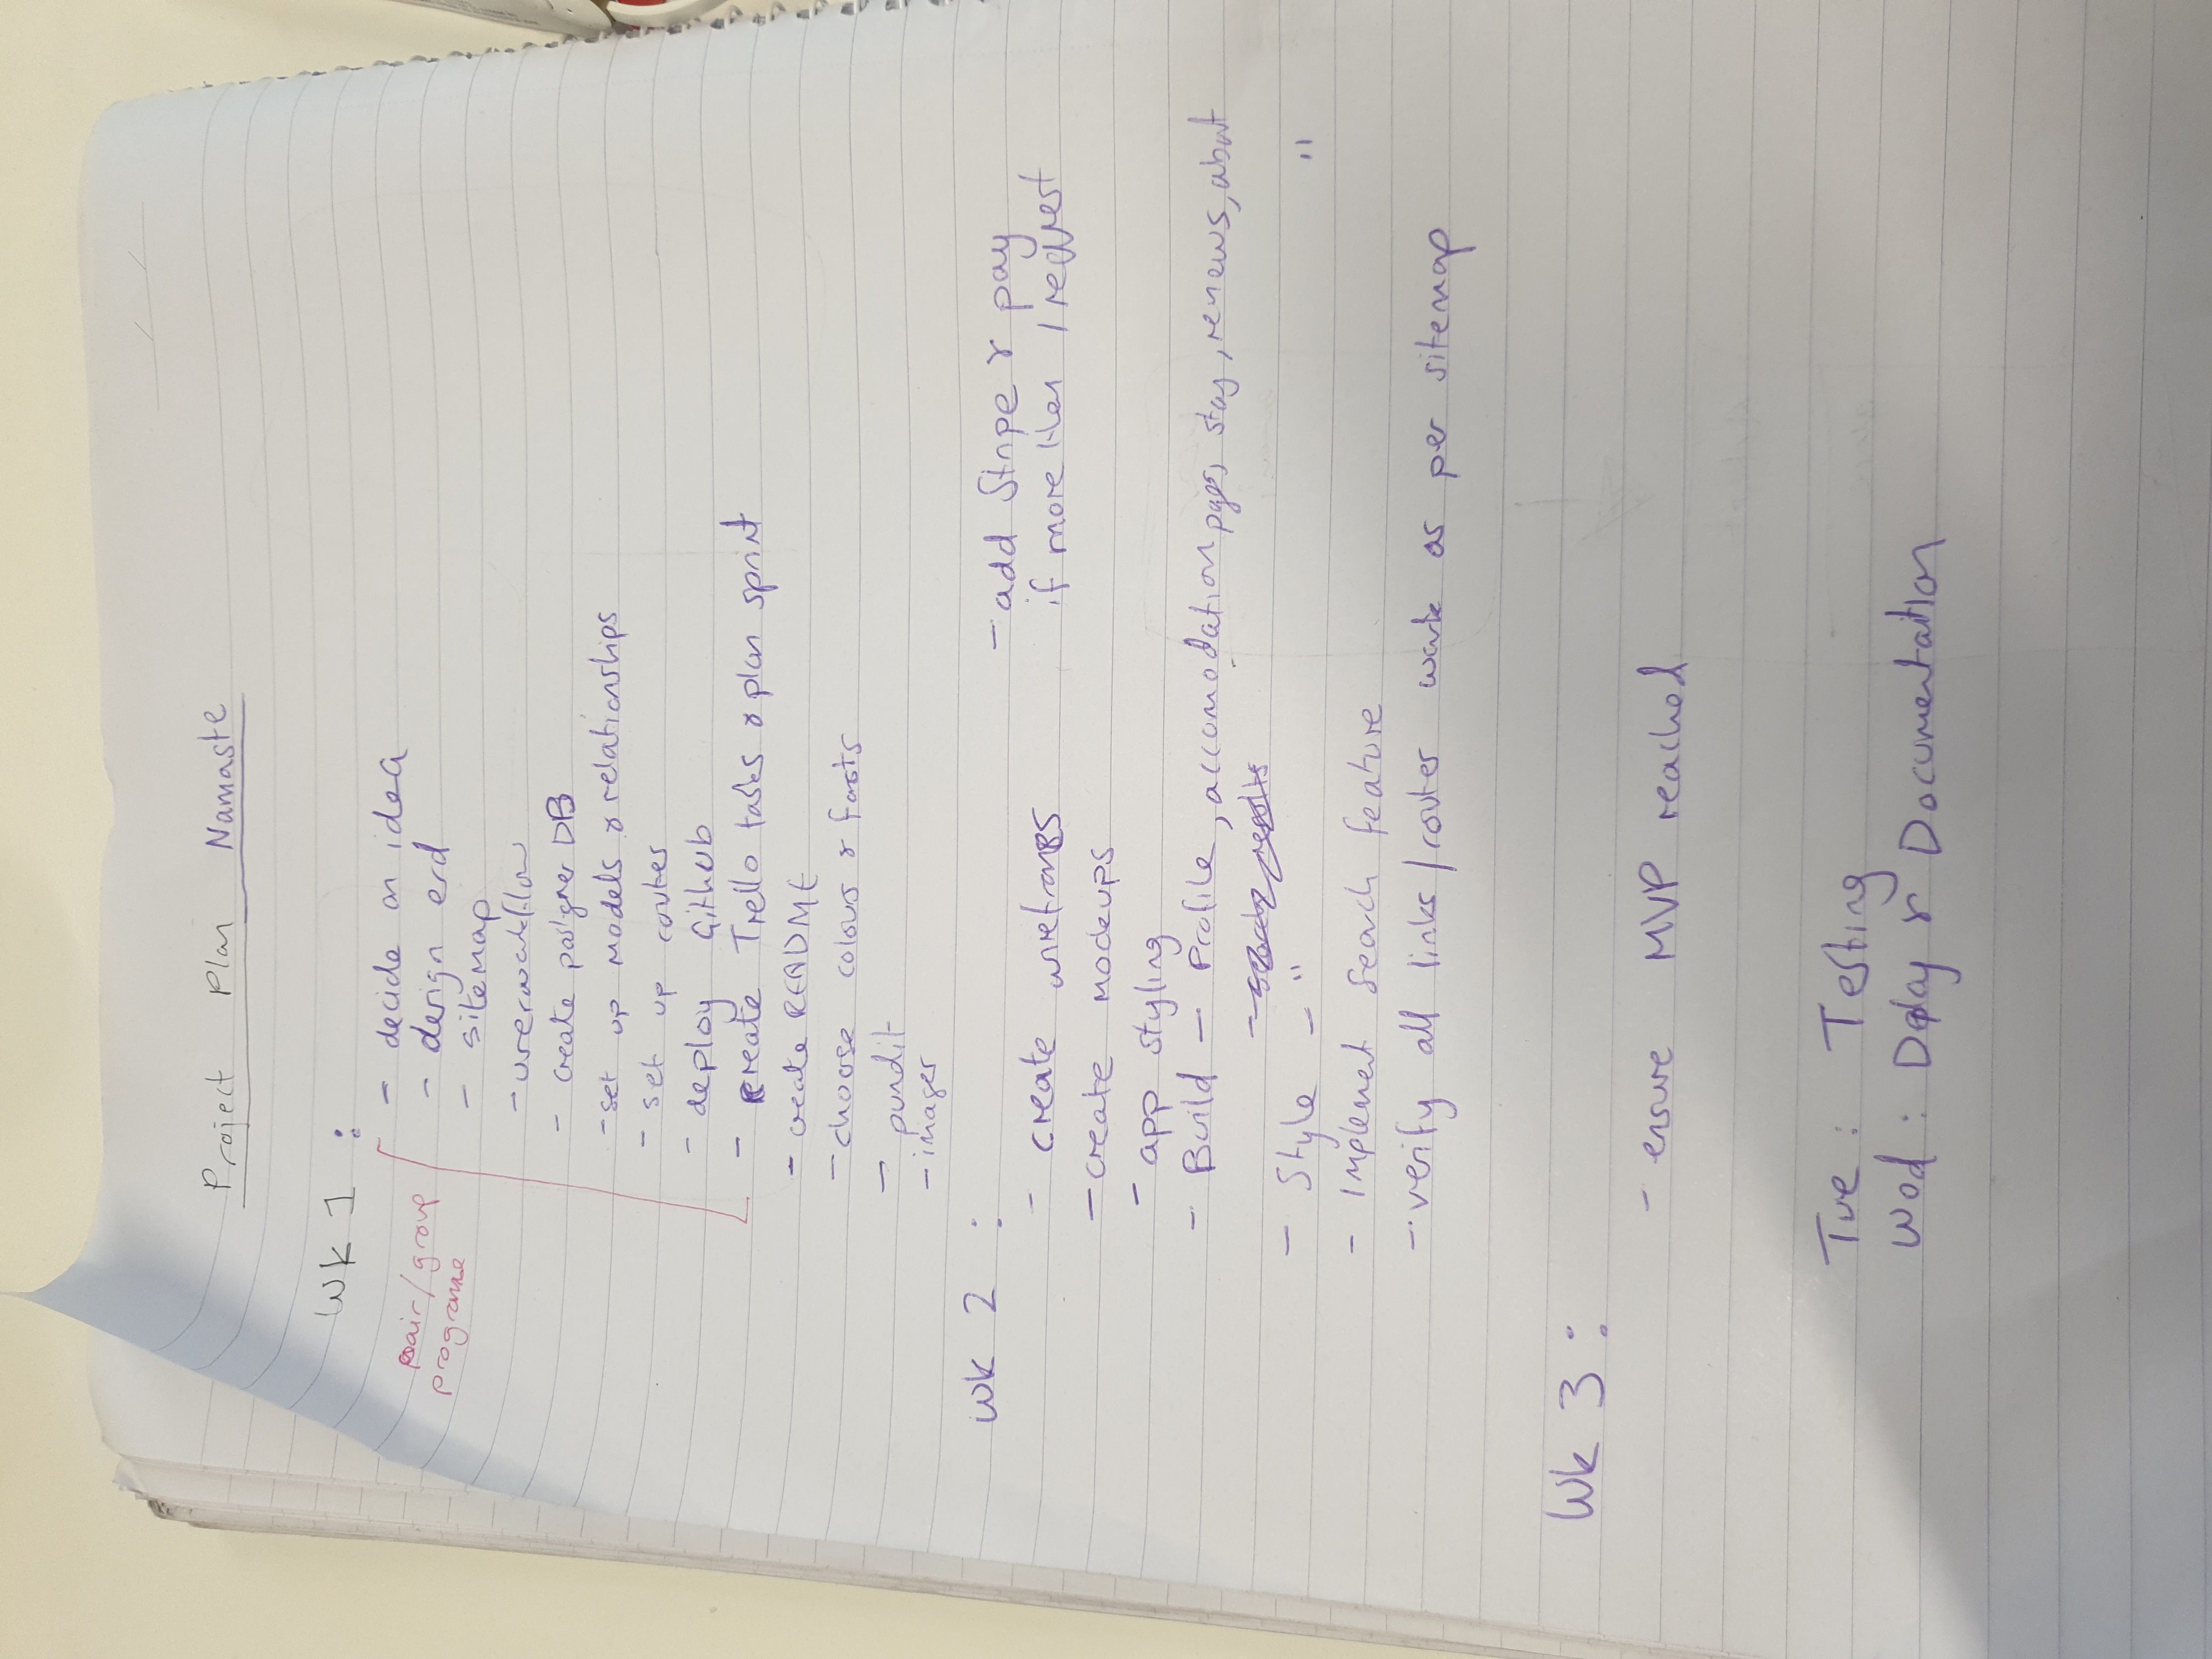 Project Plan Namaste
Wk 1 :
pair/group
programme
- decide on idea
- design erd
- sitemap
- userworkflow
- create postgres DB
- set up models & relationships
- set up routes
- deploy Github
- create Trello tasks & plan sprint
- create README
- choose colours & fonts
- pundit
- images
Wk 2 :
- create wireframes
- create mockups
- app styling
- Build - Profile, accomodation pages, stay, reviews, about
- search results
- Style - " "
- Implement Search feature
- verify all links/routes work as per sitemap
- add Stripe & pay
if more than 1 request
Wk 3 :
- ensure MVP reached
Tue : Testing
Wed : Deploy & Documentation